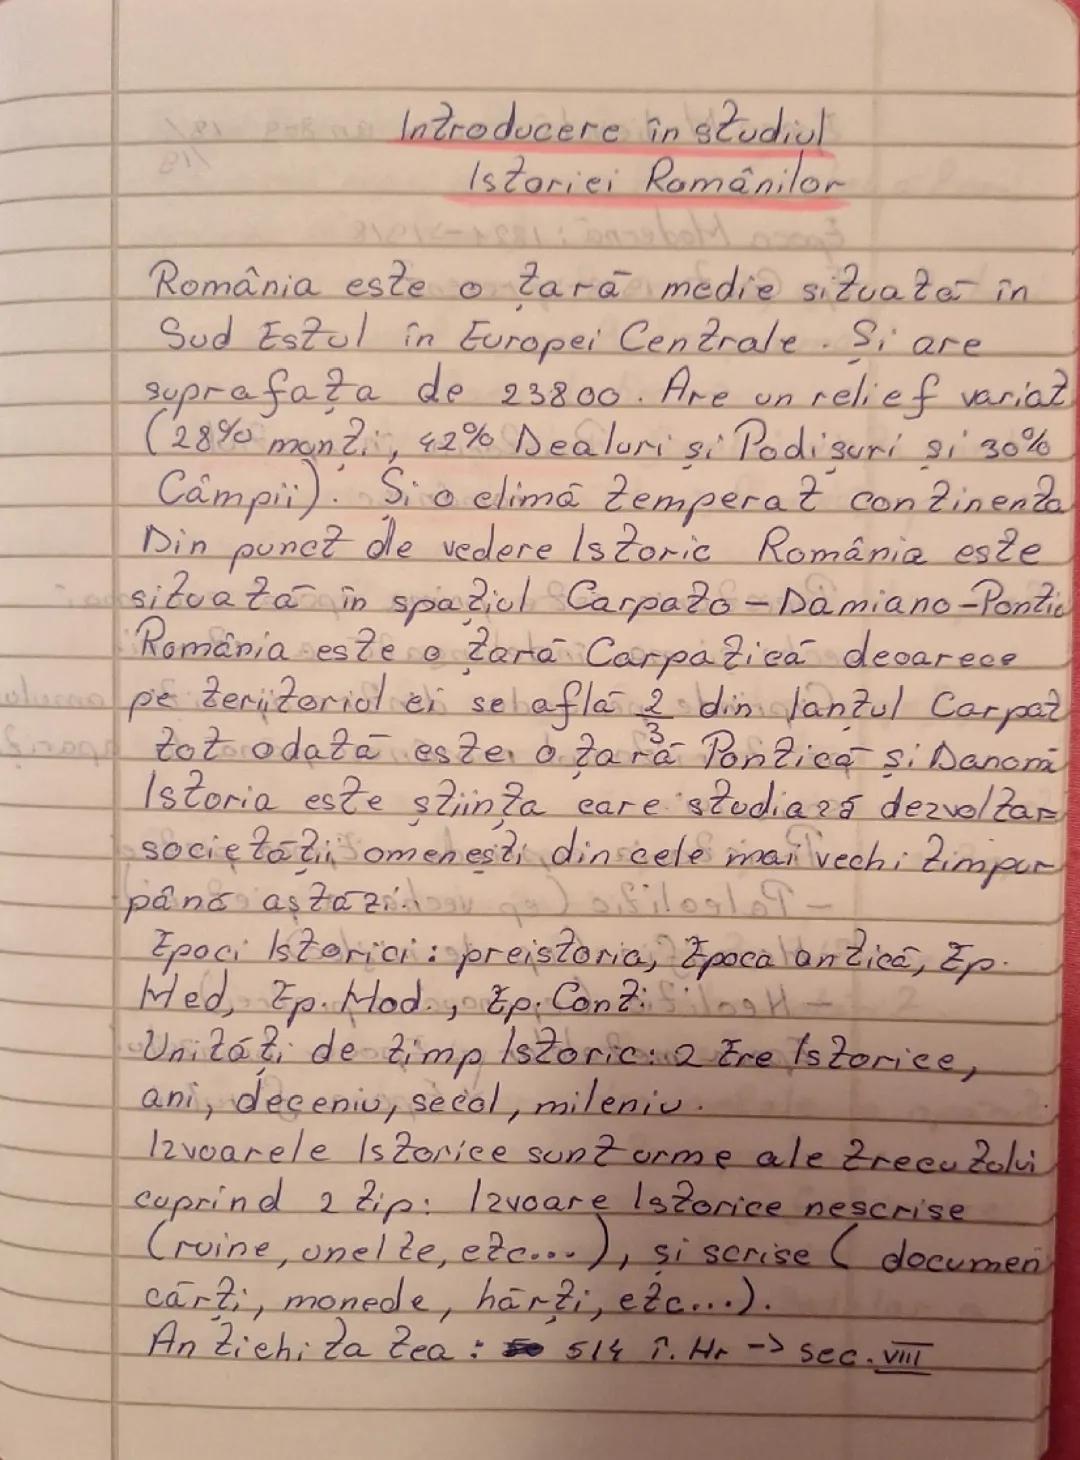 Introducere în studiul
Istoriei Românilor
România este o țară medie situată în
Sud Estul în Europei Centrale. Și are
suprafața de 23800. Are un relief variat
(28% monți, 42% Dealuri și Podișuri și 30%
Câmpii). Și o climă temperat continenta
Din punct de vedere Istoric România este
situată în spațiul Carpato-Damiano-Pontic
România este o țară Carpatică deoarece
pe terijtoriul ei se aflā 2/3 din lanțul Carpat
totodată este o țară Pontică și Danonă
Istoria este știința care studiază dezvoltar
societății omenești din cele mai vechi timpur
până astăzi.
Epoci Istorici: preistoria, Epoca antică, Ep.
Med, Ep. Mod., Ep. Cont.
Unități de timp Istoric: 2 Ere Istorice,
ani, deceniu, secol, mileniu.
Izvoarele Istorice sunt urme ale trecutului
cuprind 2 tip: Izvoare Istorice nescrise
(ruine, unelte, etc...), și scrise ( documen
cărți, monede, hărți, etc...).
Antichitatea: 514 î. Hr -> sec. VIII